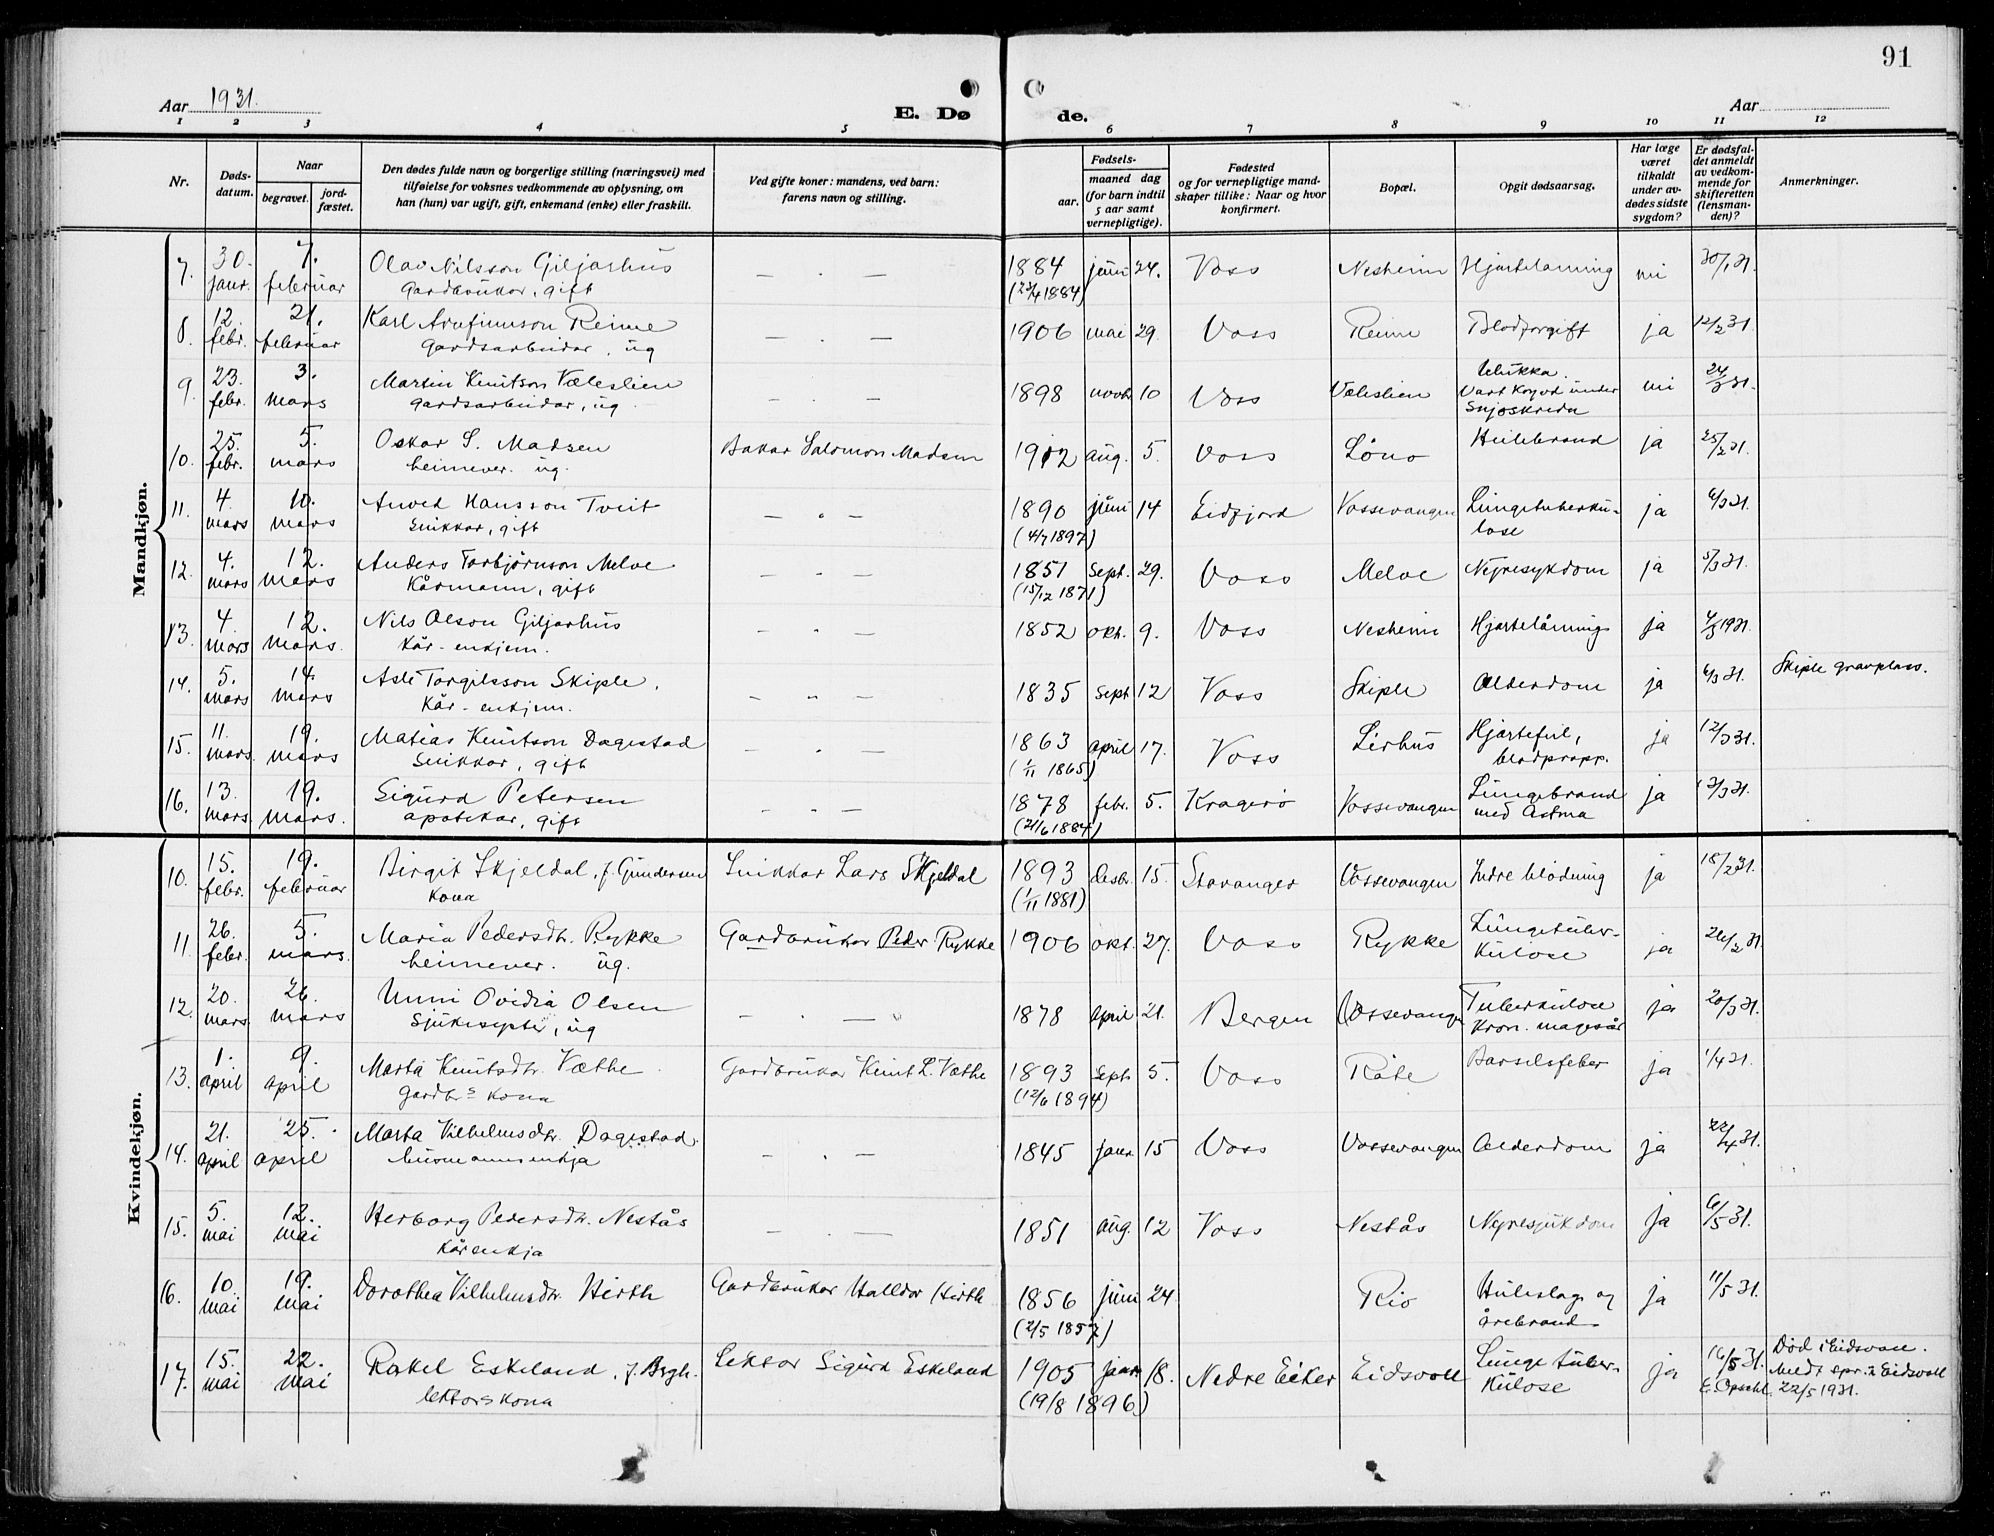 91
Aar 1931.
E. Dø de.
Aar
1 2 3 4 5 6 7 8 9 10 11 12
Nr.
Døds-
datum.
Naar
begravet.
jord-
fæstet.
Den dødes fulde navn og borgerlige stilling (næringsvei) med
tilføielse for voksnes vedkommende av oplysning, om
han (hun) var ugift, gift, enkemand (enke) eller fraskilt.
Ved gifte koner: mandens, ved barn:
farens navn og stilling.
Fødsels-
aar.
maaned dag
(for barn indtil
5 aar samt
vernepligtige).
Fødested
og for vernepligtige mand-
skaper tillike: Naar og hvor
konfirmert.
Bopæl.
Opgit dødsaarsag.
Har læge
været
tilkaldt
under av-
dødes sidste
sygdom?
Er dødsfal-
det anmeldt
av vedkom-
mende for
skifteretten
(lensman-
den)?
Anmerkninger.
Mandkjøn.
7. 30. 7. Olav Nilsson Giljarhus — . — 1884 juni 24. Voss Nesheim Hjartelamning nei 30/1 31.
janr. februar Gardbrukar, gift (23/4 1884)
8. 12. 21. Karl Arnfinnson Reime — . — 1906 mai 29. Voss Reime Blodforgift ja 12/2 31.
febr. februar Gardsarbeidar, ug
9. 23. 3. Martin Knutson Væleslien — . — 1898 novbr 10 Voss Væleslien Ulukka. nei 24/2 31.
febr. mars Gardsarbeidar, ug. Vart kvævd under
Snjoskreda
10. 25. 5. Oskar S. Madsen Bakar Salomon Madsen 1912 aug. 5. Voss Lőno Heilebrand ja 25/2 31.
febr. mars heimever. ug.
11. 4. 10. Arved Hansson Tveit — . — 1890 juni 14 Eidfjord Vossevangen Lungetuberku- ja 6/3 31.
mars mars Snikkar, gift (4/7 1897) lose
12. 4. 12. Anders Torbjørnson Melve — . — 1851 Sept. 29. Voss Melve Nyresykdom ja 5/3 31.
mars mars Kårmann, gift (15/12 1871)
13. 4 12. Nils Olson Giljarhus — . — 1852 okt. 9. Voss Nesheim Hjartelåming ja 4/3 1931.
mars mars. Kår-enkjem.
14. 5. 14. Asle Torgilsson Skiple. — . — 1835 Sept 12 Voss Skiple Alderdom ja 6/3 31. Skiple gravplass.
mars mars Kår-enkjem.
15. 11. 19. Matias Knutson Dagestad — . — 1863 april 17. Voss Lirhus Hjartefeil, ja 12/3 31.
mars. mars Snikkar, gift (1/11 1865) blodpropp.
16. 13. 19. Sigurd Petersen — . — 1878 febr. 5. Kragerø Vossevangen Lungebrand ja 13/3 31.
mars mars. apotekar, gift (21/6 1884) med Astma
Kvindekjøn.
10. 15. 19. Birgit Skjeldal, f. Gundersen Snikkar Lars Skjeldal 1893 Desbr. 15. Stavanger Vossevangen Indre blødning ja 18/2 31.
febr. februar kona (1/11 1881)
11. 26. 5. Maria Pedersdtr. Rykke Gardbrukar Peder Rykke 1906 okt. 27. Voss Rykke Lungetuber- ja 26/2 31
febr. mars. heimever. ug. kulose
12. 20. 26. Unni Ovidia Olsen — . — 1878 april 21. Bergen Vossevangen Tuberkulose ja 20/3 31.
mars mars Sjukesyster, ug kron. magesår
13. 1. 9. Marta Knutsdtr. Væthe Gardbrukar Knut L. Væthe 1893 Sept. 5. Voss Råte Barselsfeber ja 1/4 31.
april april gardbrs kona (12/6 1894)
14. 21. 25. Marta Vilhelmsdtr. Dagestad. — . — 1845 janr. 15 Voss Vossevangen Alderdom ja 22/4 31.
april april husmannsenkja
15. 5. 12. Herborg Pedersdtr. Nestås — . — 1851 aug. 12 Voss Nestås Nyresjukdom ja 6/5 31.
mai mai Kårenkja
16. 10. 19. Dorothea Vilhelmsdtr. Hirth Gardbrukar Halldor Hirth 1856 juni 24 Rio Heileslag og ja 11/5 31.
mai mai (2/5 1857) årebrand
17. 15. 22. Rakel Eskeland, f. Bergh. Lektor Sigurd Eskeland 1905 janr 18. Nedre Eiker Eidsvoll Lunge tuber- ja 16/5 31. Död i Eidsvoll.
mai mai lektorskona (19/8 1896) kulose E. Opsahl. Meldt spr. i Eidsvoll
22/5 1931.